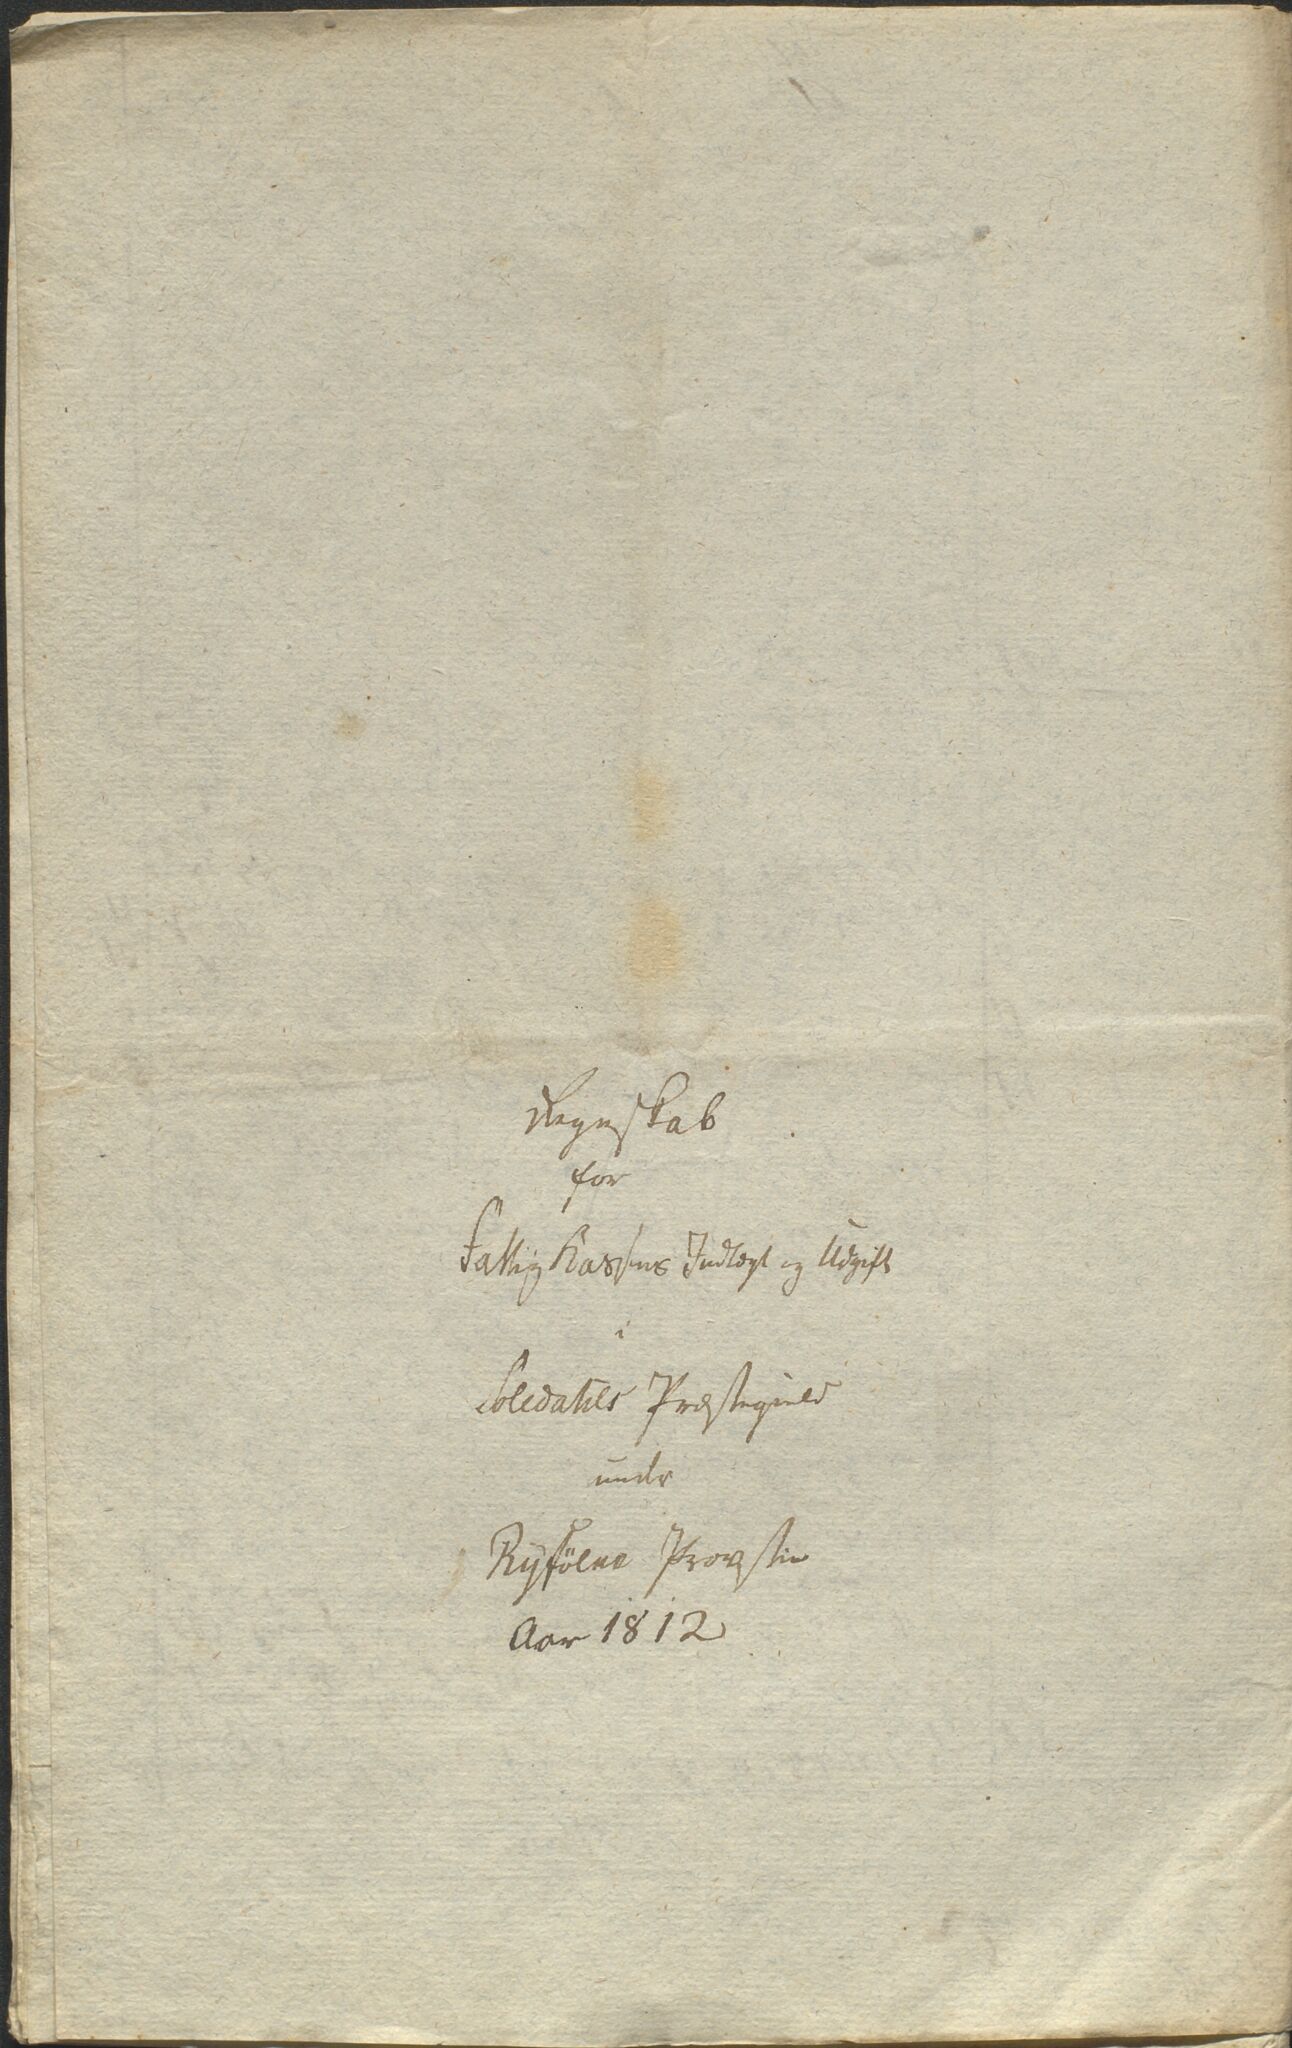 Regnskab
for
Fattig Kassens Indtægt og Udgift
i
Soledahls Præstegield
under
Ryfölke Provstie
Aar 1812